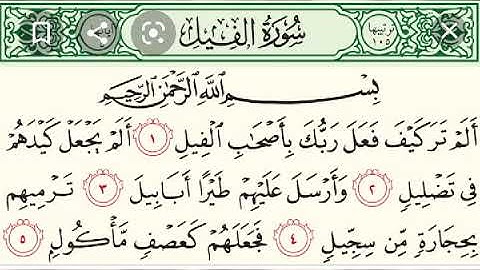 سُورَةُ الفِيلِ
ترتيبها ١٠٥
بِسْمِ اللَّهِ الرَّحْمَٰنِ الرَّحِيمِ
أَلَمْ تَرَ كَيْفَ فَعَلَ رَبُّكَ بِأَصْحَابِ الْفِيلِ ١ أَلَمْ يَجْعَلْ كَيْدَهُمْ
فِي تَضْلِيلٍ ٢ وَأَرْسَلَ عَلَيْهِمْ طَيْرًا أَبَابِيلَ ٣ تَرْمِيهِم
بِحِجَارَةٍ مِّن سِجِّيلٍ ٤ فَجَعَلَهُمْ كَعَصْفٍ مَّأْكُولٍ ٥